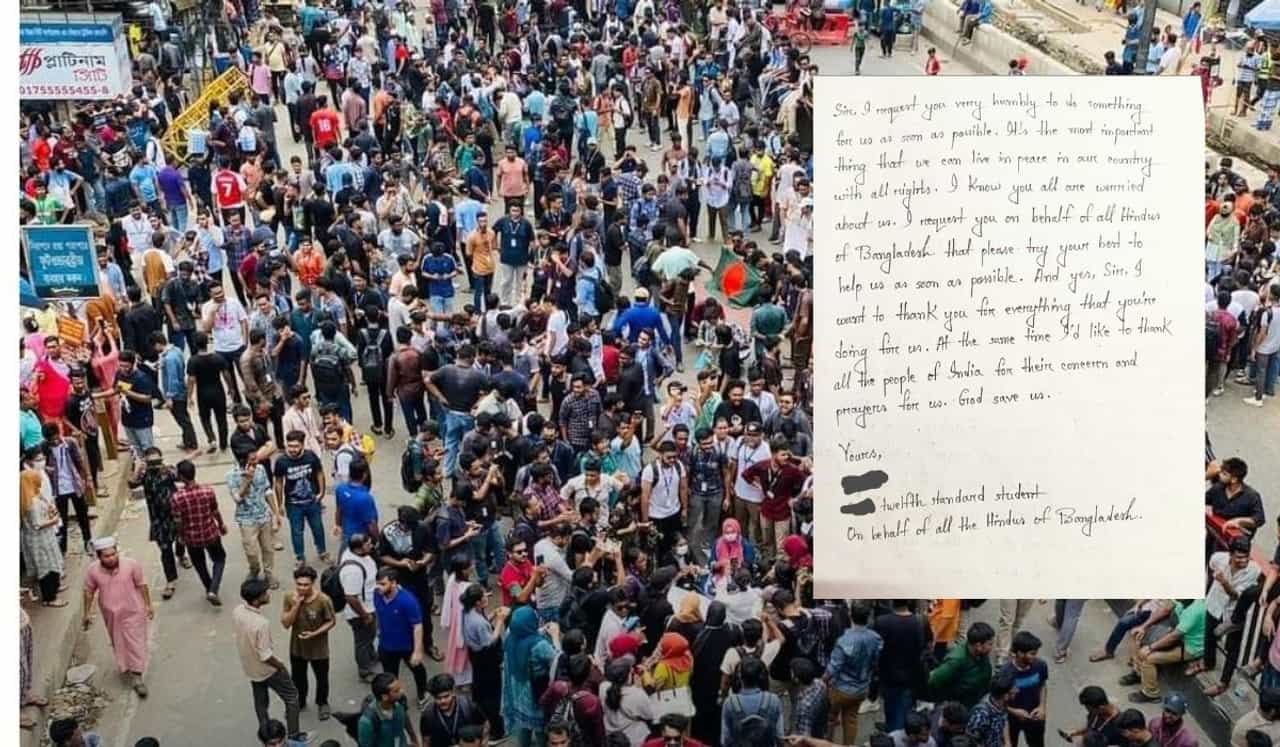 প্লাটিনাম
সিটি
01755555455-8
ফুটওভারব্রীজ
ব্যবহার করুন
7
Sir, I request you very humbly to do something
for us as soon as possible. It's the most important
thing that we can live in peace in our country
with all rights. I know you all are worried
about us. I request you on behalf of all Hindus
of Bangladesh that please try your best to
help us as soon as possible. And yes, Sir, I
want to thank you for everything that you're
doing for us. At the same time I'd like to thank
all the people of India for their concern and
prayers for us. God save us.
Yours,
twelfth standard student
On behalf of all the Hindus of Bangladesh.